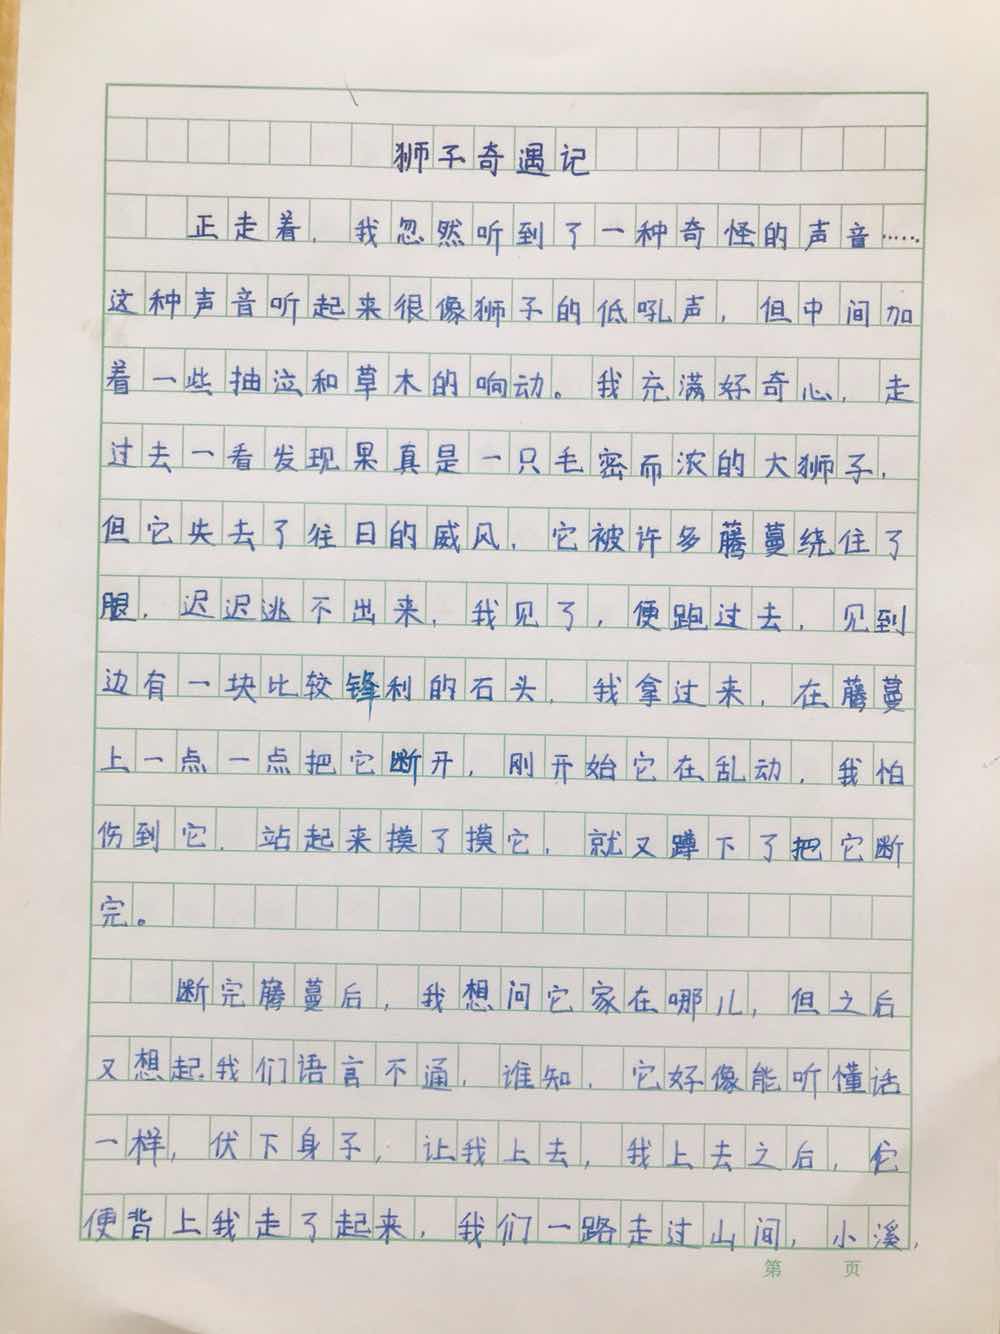 狮子奇遇记
正走着，我忽然听到了一种奇怪的声音……
这种声音听起来很像狮子的低吼声，但中间加
着一些抽泣和草木的响动。我充满好奇心，走
过去一看发现果真是一只毛密而浓的大狮子，
但它失去了往日的威风，它被许多藤蔓绕住了
腿，迟迟逃不出来，我见了，便跑过去，见到
边有一块比较锋利的石头，我拿过来，在藤蔓
上一点一点把它断开，刚开始它在乱动，我怕
伤到它，站起来摸了摸它，就又蹲下了把它断
完。
断完藤蔓后，我想问它家在哪儿，但之后
又想起我们语言不通，谁知，它好像能听懂话
一样，伏下身子，让我上去，我上去之后，它
便背上我走了起来，我们一路走过山间，小溪，
第 页